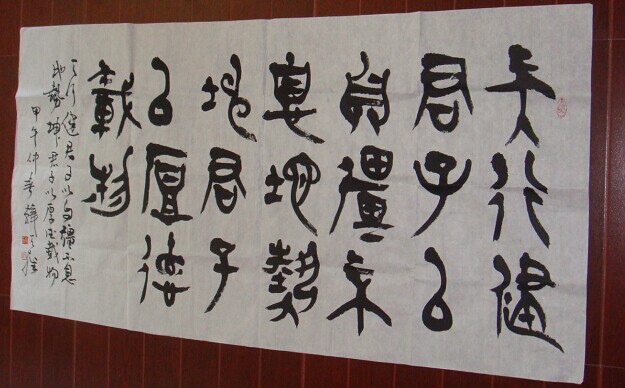 天行健
君子以
自彊不
息地勢
坤君子
以厚德
載物
天行健君子以自彊不息
地勢坤君子以厚德載物
甲午仲春